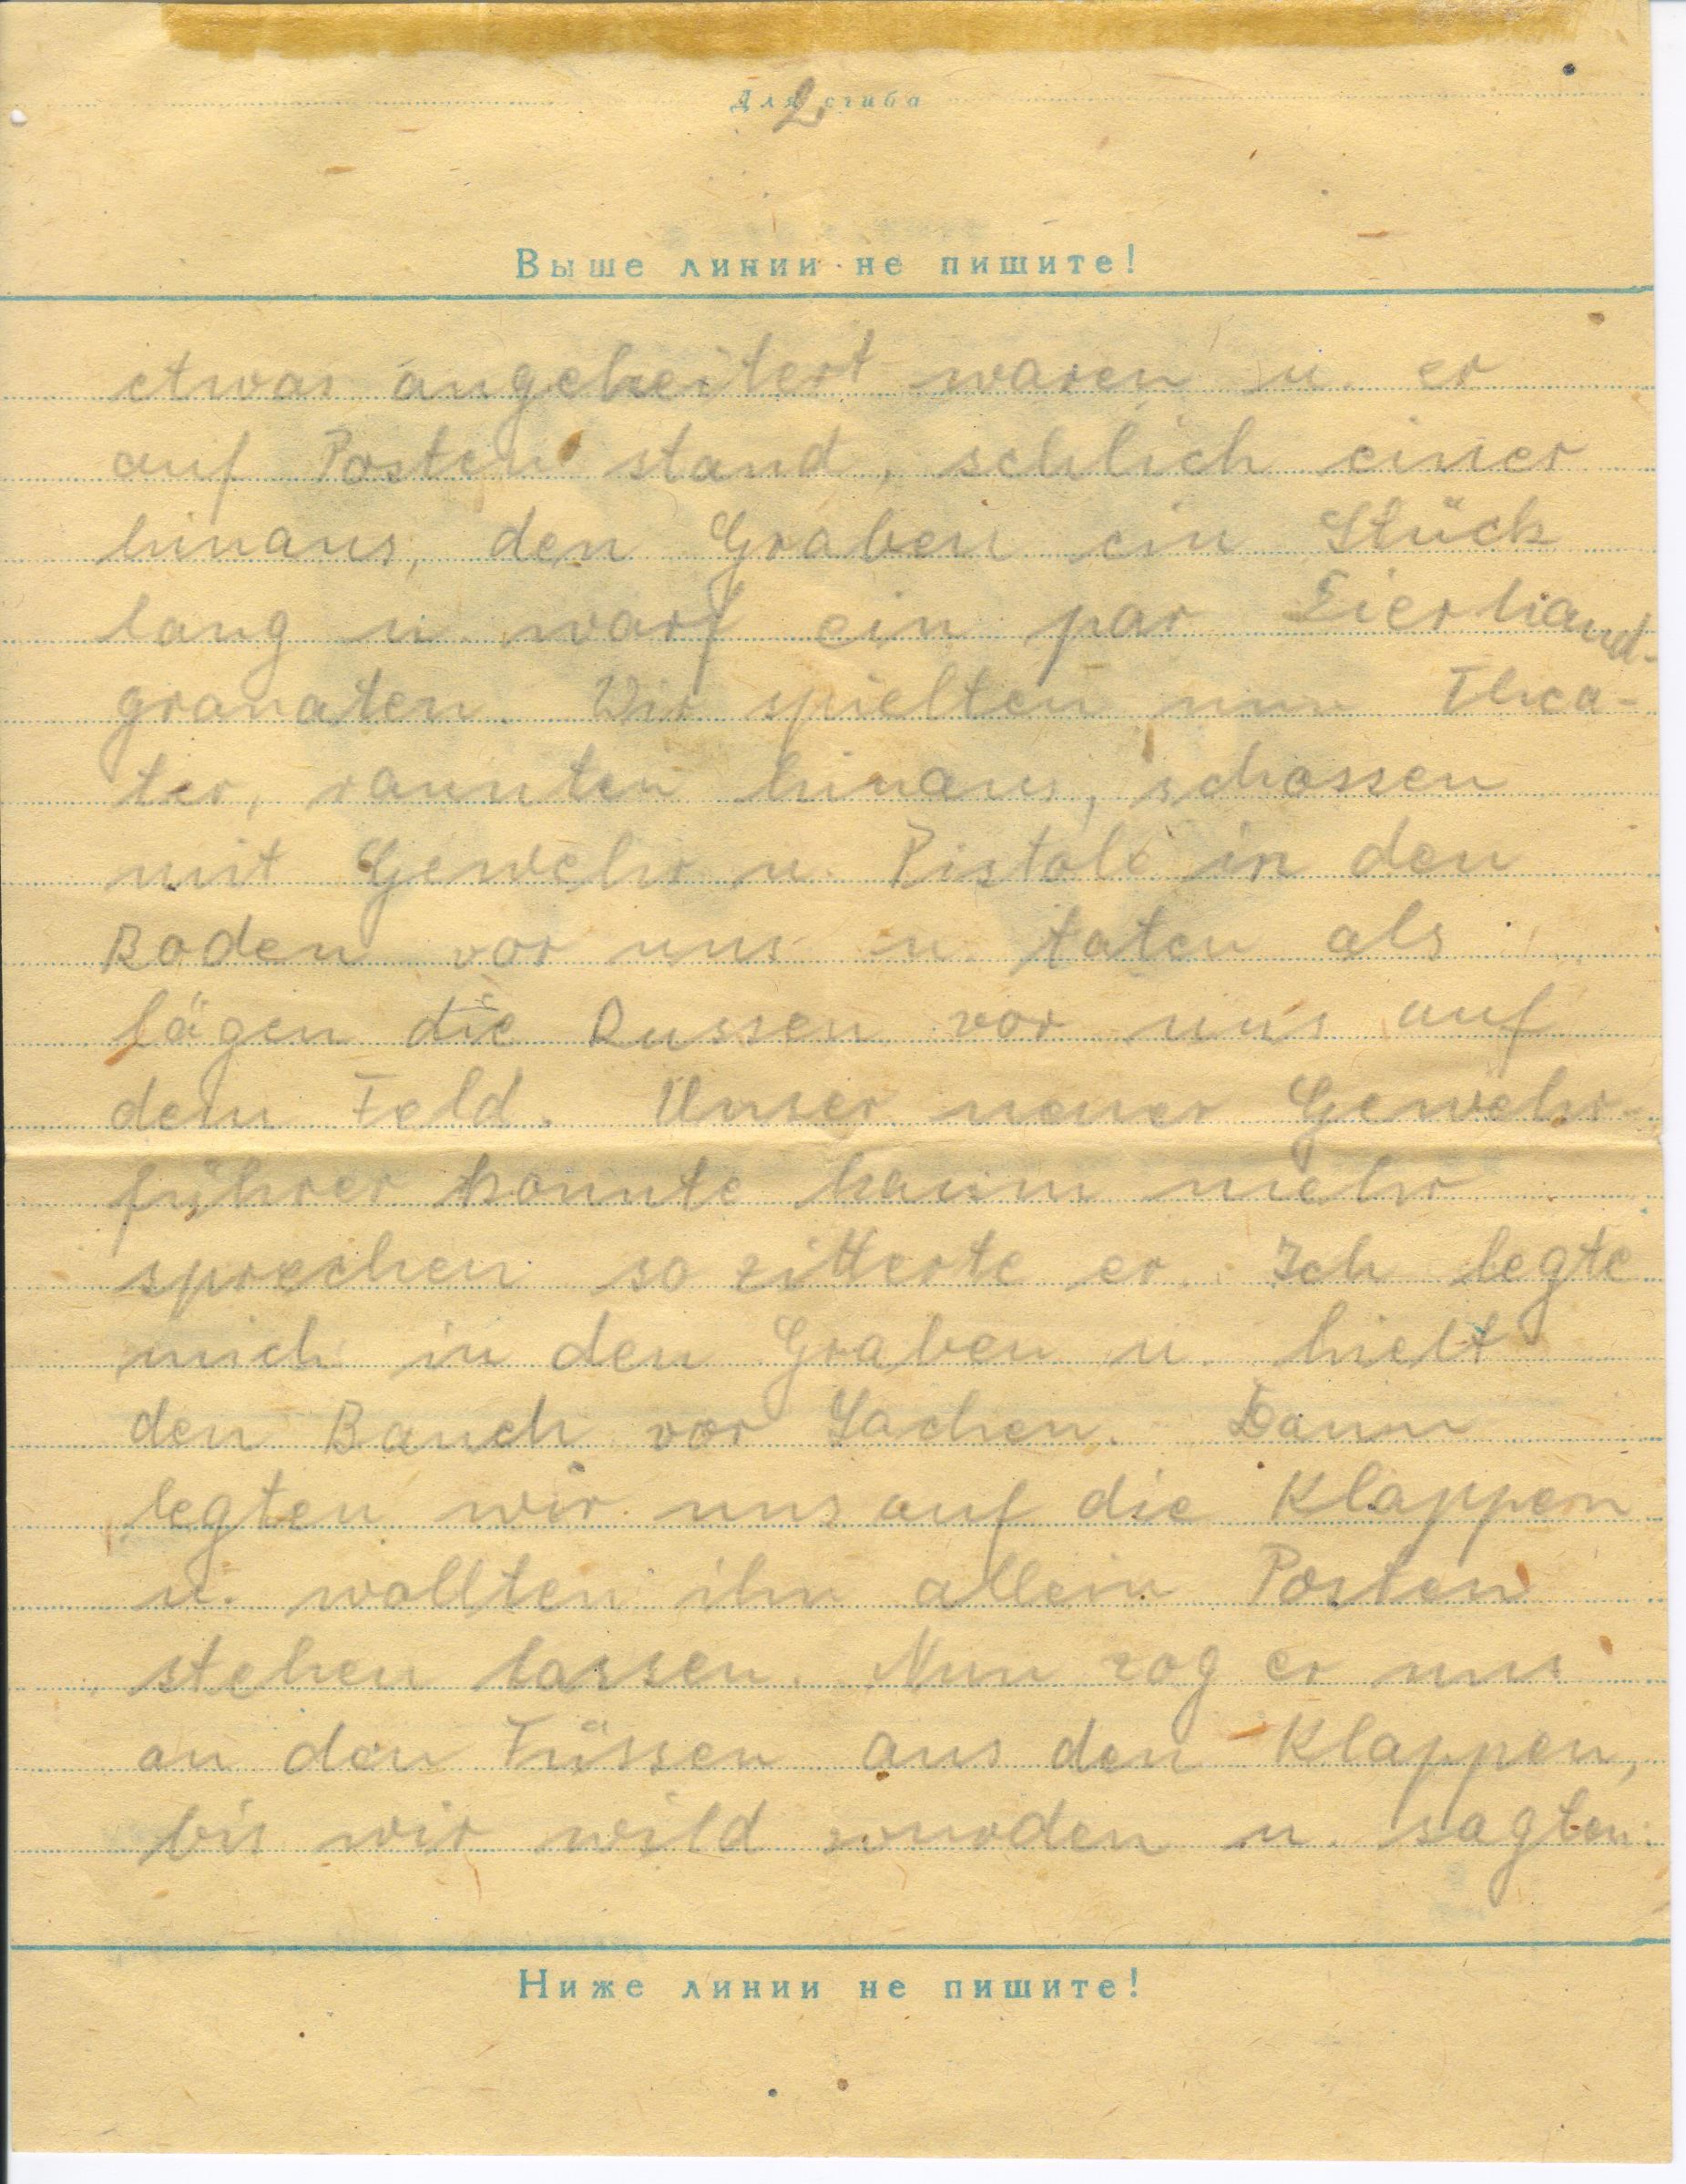 Для сгиба
2
Выше линии не пишите!
etwas angeheitert waren u. er
auf Posten stand, schlich einer
hinaus, den Graben ein Stück
lang u. warf ein par Eierhand-
granaten. Wir spielten nun Thea-
ter, rannten hinaus, schossen
mit Gewehr u. Pistole in den
Boden vor uns u. taten als
lägen die Russen vor uns auf
dem Feld. Unser neuer Gewehr-
führer konnte kaum mehr
sprechen so zitterte er. Ich legte
mich in den Graben u. hielt
den Bauch vor Lachen. Dann
legten wir uns auf die Klappen
u. wollten ihn allein Posten
stehen lassen. Nun zog er uns
an den Füssen aus den Klappen,
bis wir wild wurden u. sagten:
Ниже линии не пишите!